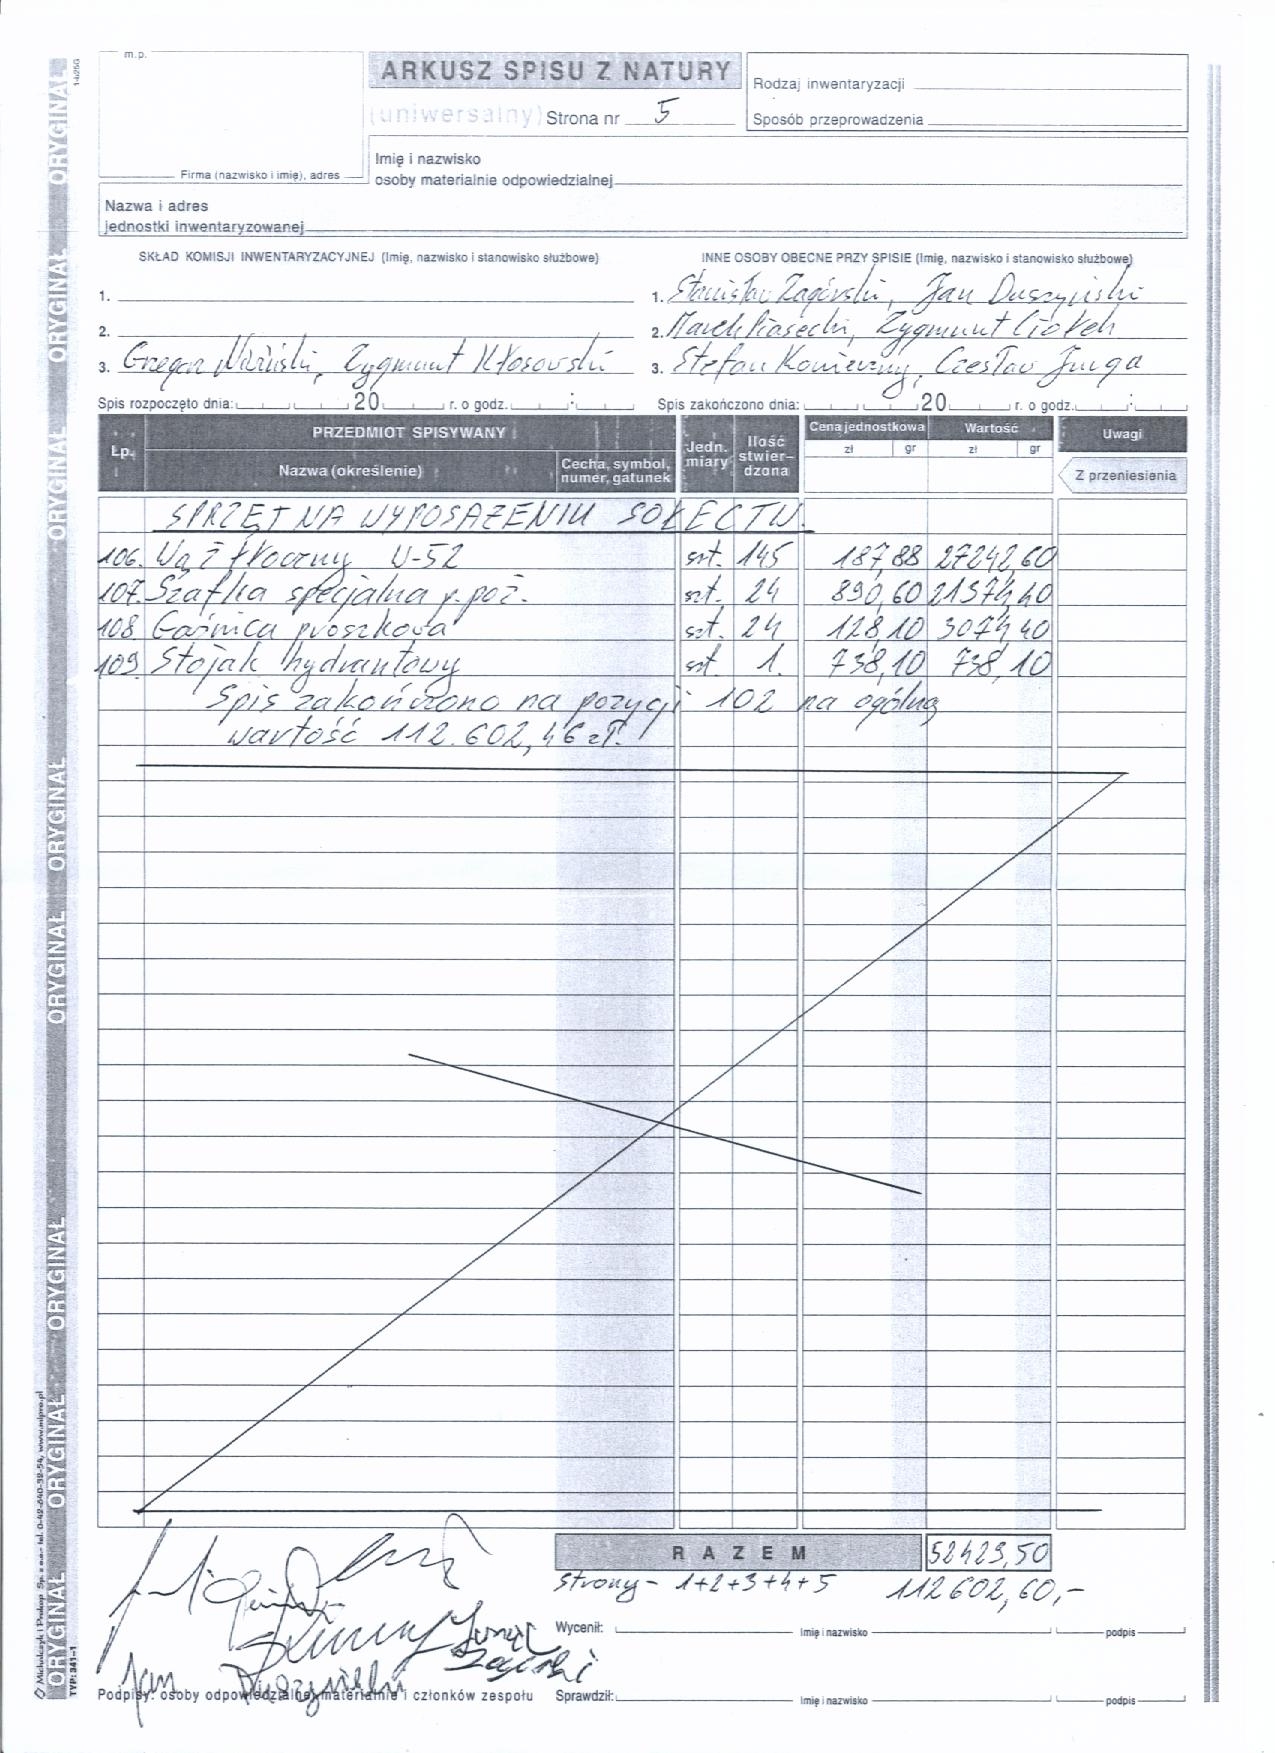 m.p.
1-b25G
ARKUSZ SPISU Z NATURY
(uniwersalny) Strona nr 5
Rodzaj inwentaryzacji
Sposób przeprowadzenia
Firma (nazwisko i imię), adres
Imię i nazwisko
osoby materialnie odpowiedzialnej
Nazwa i adres
jednostki inwentaryzowanej
SKŁAD KOMISJI INWENTARYZACYJNEJ (Imię, nazwisko i stanowisko służbowe)
1.
2.
3. Grzegorz Zygmunt Kłosowski
INNE OSOBY OBECNE PRZY SPISIE (Imię, nazwisko i stanowisko służbowe)
1. Stanisław Zagórski, Jan Duszyński
2. Marek Piasecki, Zygmunt Ciołek
3. Stefan Konieczny, Czesław Junga
Spis rozpoczęto dnia: 20 r. o godz. :
Spis zakończono dnia: 20 r. o godz. :
Lp. PRZEDMIOT SPISYWANY Jedn. miary Ilość stwier-dzona Cena jednostkowa Wartość Uwagi
Nazwa (określenie) Cecha, symbol, numer, gatunek zł gr zł gr Z przeniesienia
SPRZĘT NA WYPOSAŻENIU SOŁECTW.
106. Wąż tłoczny W-52 szt. 145 187,88 27242,60
107. Szafka specjalna p.poż. szt. 24 890,60 21374,40
108 Gaśnica proszkowa szt. 24 128,10 3074,40
109 Stojak hydrantowy szt. 1. 738,10 738,10
Spis zakończono na pozycji 102 na ogólną
wartość 112.602,46 zł.
RAZEM 52429,50
Strony - 1+2+3+4+5 112602,60,-
Wycenił: Imię i nazwisko podpis
Jan Duszyński
Podpisy: osoby odpowiedzialnej materialnie i członków zespołu
Sprawdził: Imię i nazwisko podpis
ORYGINAŁ ORYGINAŁ ORYGINAŁ ORYGINAŁ ORYGINAŁ ORYGINAŁ ORYGINAŁ ORYGINAŁ ORYGINAŁ
Michalczyk i Prokop Sp. z o.o. tel. 0-42-640-32-54, www.mipro.pl
TYP: 341-1